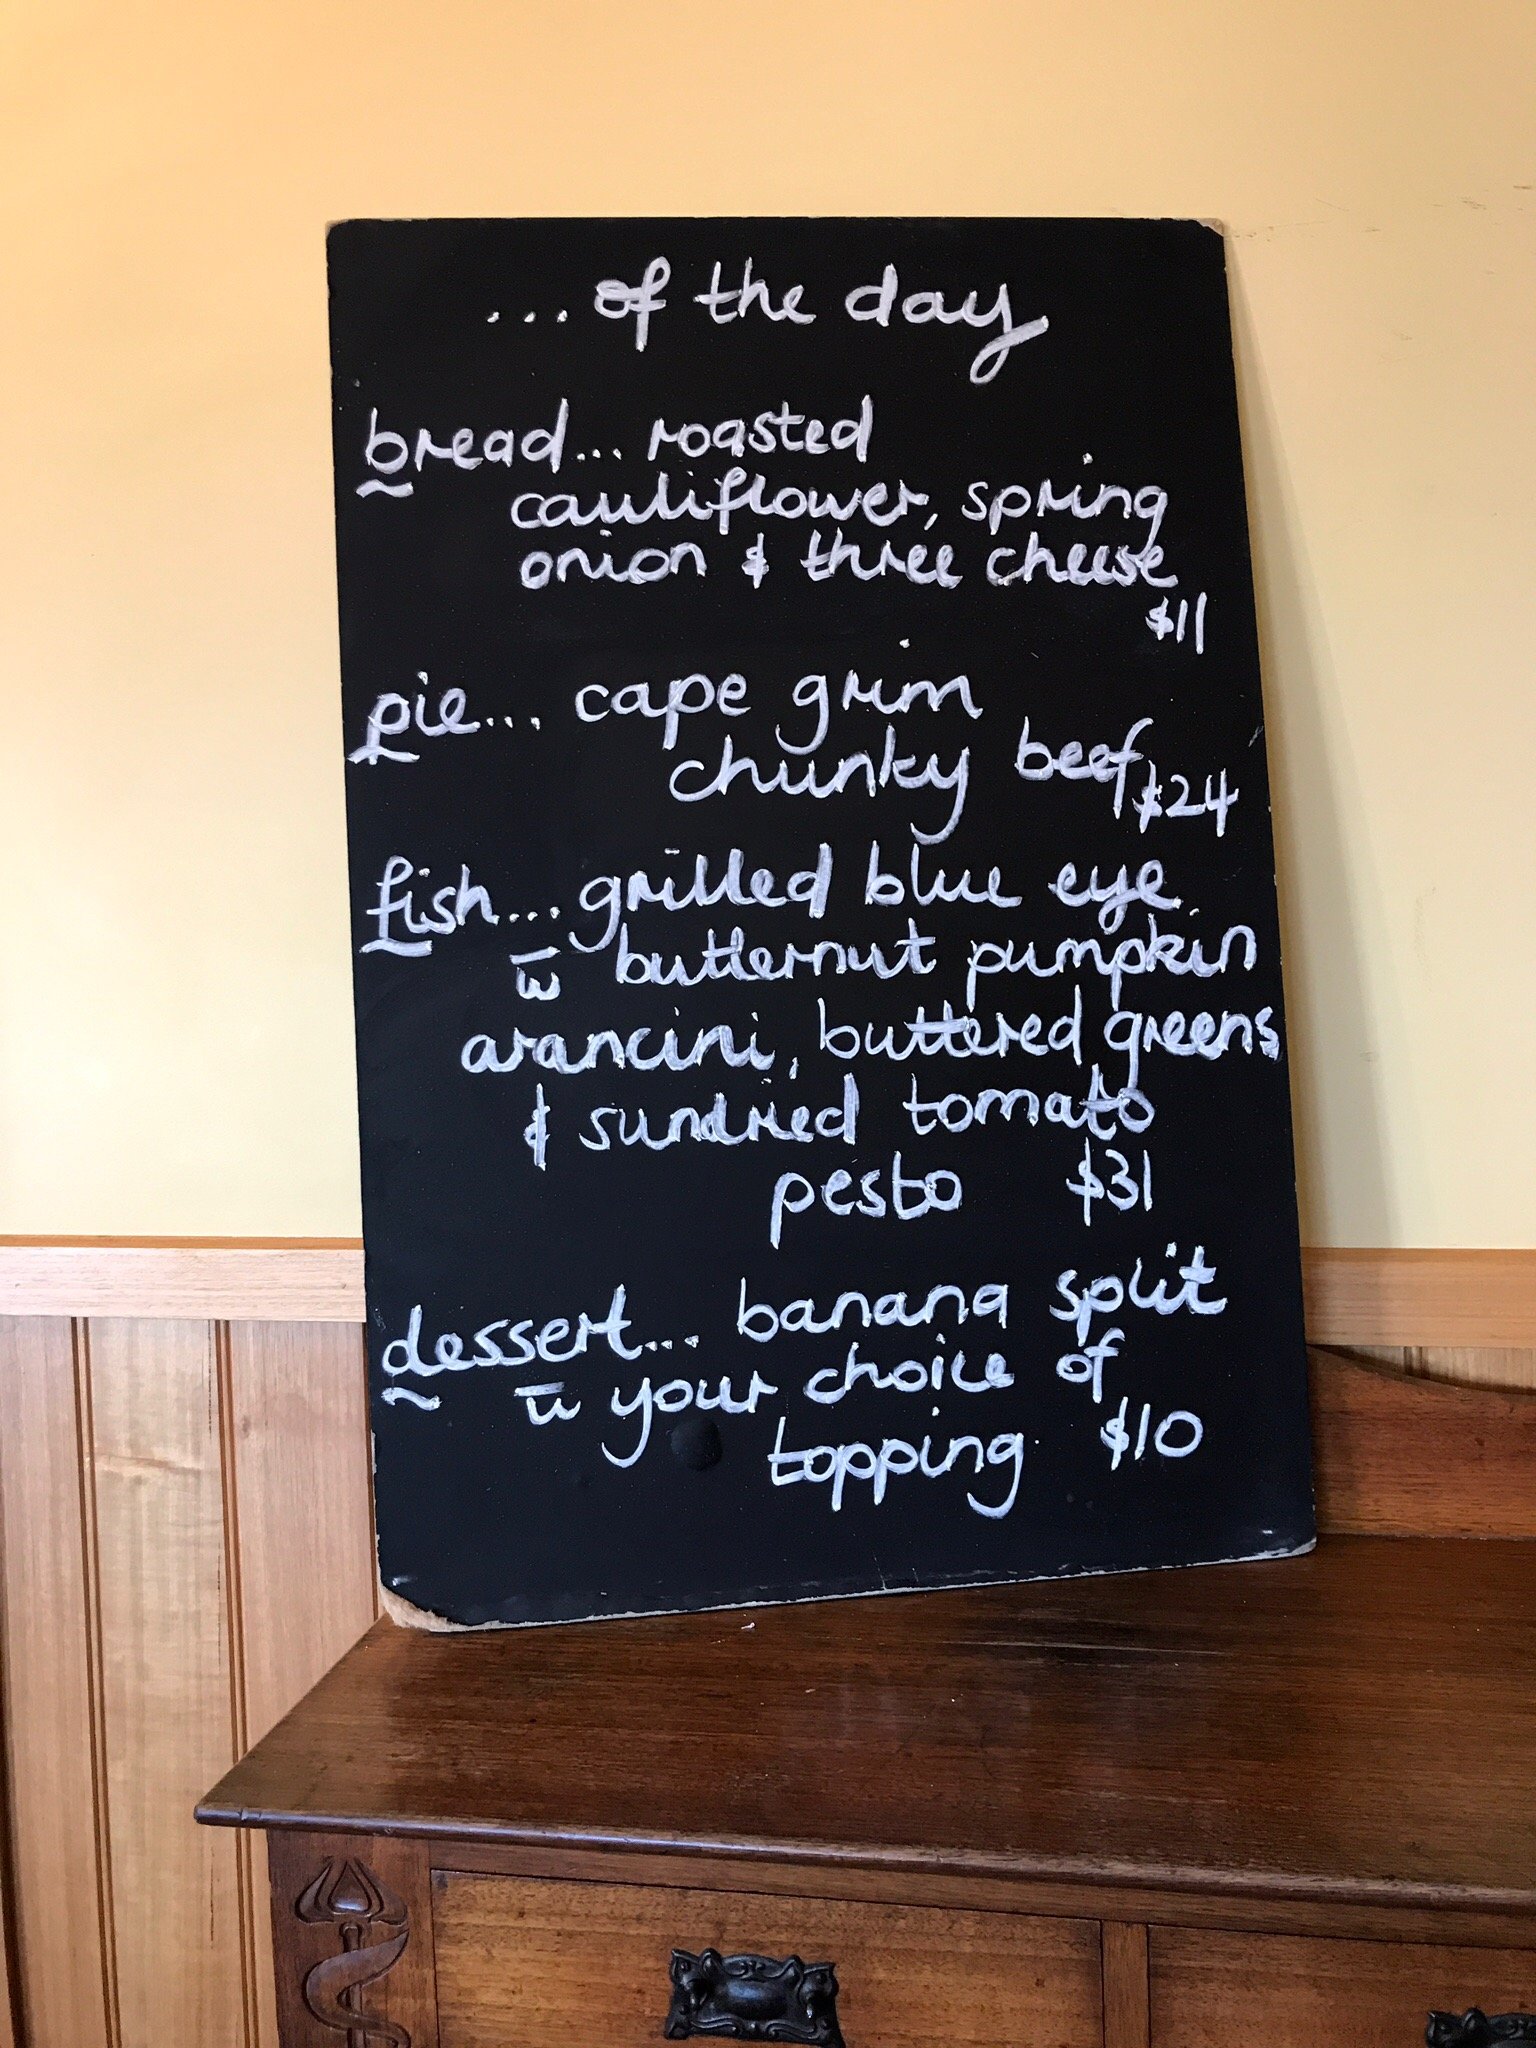 ... of the day
bread... roasted
cauliflower, spring
onion & three cheese
$11
pie... cape grim
chunky beef $24
fish... grilled blue eye
w̄ butternut pumpkin
arancini, buttered greens
& sundried tomato
pesto $31
dessert... banana split
w̄ your choice of
topping $10